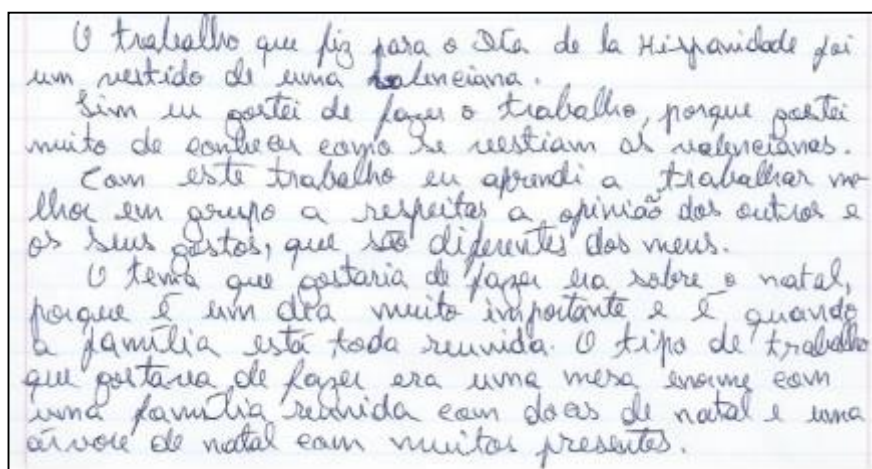 O trabalho que fiz para o Día de la Hispanidade foi
um vestido de uma valenciana.
Sim eu gostei de fazer o trabalho, porque gostei
muito de conhecer como se vestiam as valencianas.
Com este trabalho eu aprendi a trabalhar me-
lhor em grupo a respeitar a opinião dos outros e
os seus gostos, que são diferentes dos meus.
O tema que gostaria de fazer era sobre o natal,
porque é um dia muito importante e é quando
a família está toda reunida. O tipo de trabalho
que gostaria de fazer era uma mesa enorme com
uma família reunida com doces de natal e uma
árvore de natal com muitos presentes.